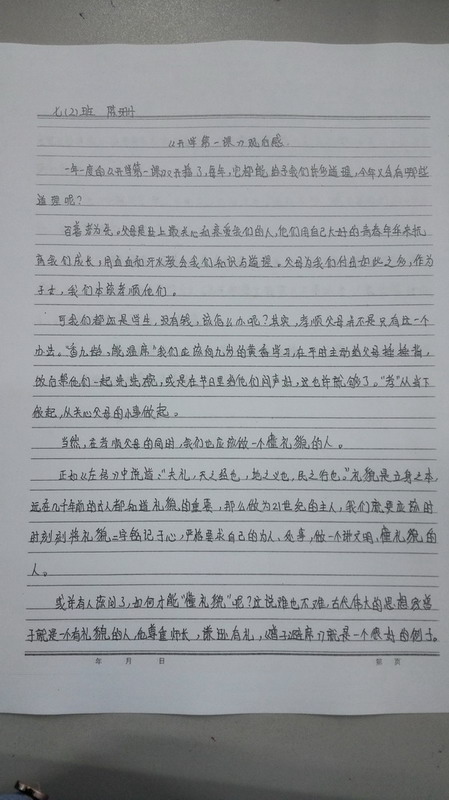 七(2)班
《开学第一课》观后感
一年一度的《开学第一课》又开播了,每年,它都能给予我们许多道理,今年又会有哪些
道理呢?
百善孝为先。父母是世上最关心和亲爱我们的人,他们用自己大好的青春年华来抚
养我们成长,用血和汗水教会我们知识与道理。父母为我们付出如此之多,作为
子女,我们本该孝顺他们。
可我们都还是学生,没有钱,该怎么办呢?其实,孝顺父母并不是只有这一个
办法。"香九龄,能温席"我们应该向九岁的黄香学习,在平时主动给父母捶捶背,
饭后帮他们一起洗洗碗,或是在节日里给他们问声好,这也许就够了。"孝"从当下
做起,从关心父母的小事做起。
当然,在孝顺父母的同时,我们也应该做一个懂礼貌的人。
正如《左传》中所指:"夫礼,天之经也,地之义也,民之行也。"礼貌是立身之本,
远在几千年前的古人都知道礼貌的重要,那么做为21世纪的主人,我们就更应该时
时刻刻将礼貌二字铭记于心,严格要求自己的为人、处事,做一个讲文明,懂礼貌的
人。
或许有人该问了,如何才能"懂礼貌"呢?这说难也不难,古代伟大的思想家曾
子就是一个有礼貌的人,他尊重师长,谦逊有礼,《曾子避席》就是一个很好的例子。
年 月 日 第 页